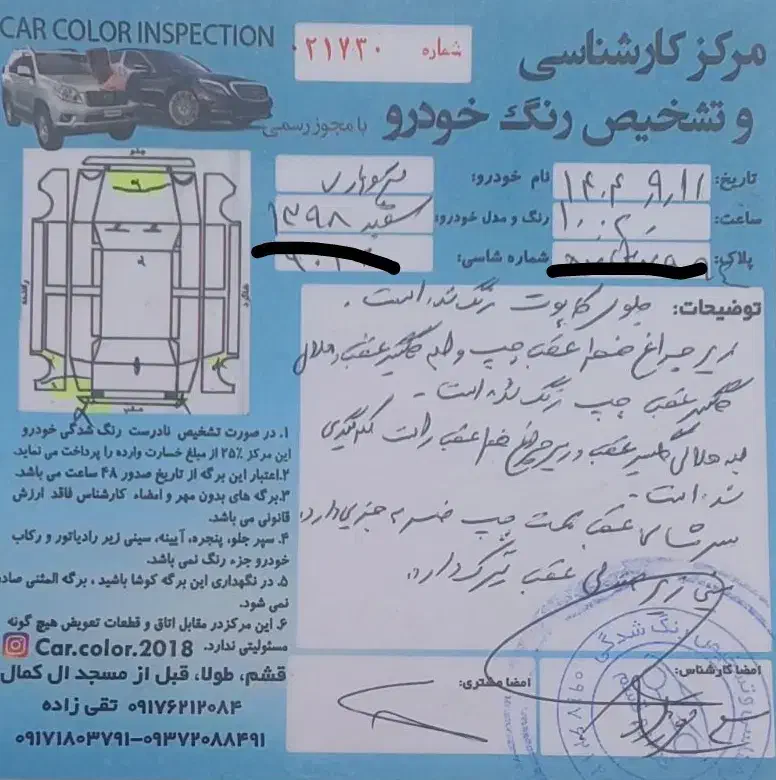 CAR COLOR INSPECTION
شماره ۰۲۱۷۳۰
مرکز کارشناسی
و تشخیص رنگ خودرو با مجوز رسمی
تاریخ: ۱۴۰۴،۹،۱۱ نام خودرو:
ساعت: رنگ و مدل خودرو: سفید ۱۳۹۸
پلاک: شماره شاسی:
توضیحات: جلوی کاپوت رنگ شده است.
زیر چراغ خطر عقب چپ و لبه گلگیر عقب و هلالی
گلگیر عقب چپ رنگ شده است.
لبه هلالی گلگیر عقب و زیر چراغ خطر عقب راست لکه‌گیری
شده است.
سرشاسی عقب سمت چپ ضربه جزیی دارد.
زیر عقب دارد.
جلو
عقب
۱. در صورت تشخیص نادرست رنگ شدگی خودرو
این مرکز ۲۵٪ از مبلغ خسارت وارده را پرداخت می نماید.
۲.اعتبار این برگه از تاریخ صدور ۴۸ ساعت می باشد.
۳.برگه های بدون مهر و امضاء کارشناس فاقد ارزش
قانونی می باشد.
۴. سپر جلو، پنجره، آیینه، سینی زیر رادیاتور و رکاب
خودرو جزء رنگ نمی باشد.
۵. در نگهداری این برگه کوشا باشید ، برگه المثنی صادر
نمی شود.
۶. این مرکزدر مقابل اتاق و قطعات تعویض هیچ گونه
مسئولیتی ندارد.
Car.color.2018
قشم، طولا، قبل از مسجد ال کمال
۰۹۱۷۶۲۱۲۰۸۴ تقی زاده
۰۹۱۷۱۸۰۳۷۹۱-۰۹۳۷۲۰۸۸۴۹۱
امضا کارشناس:
امضا مشتری: